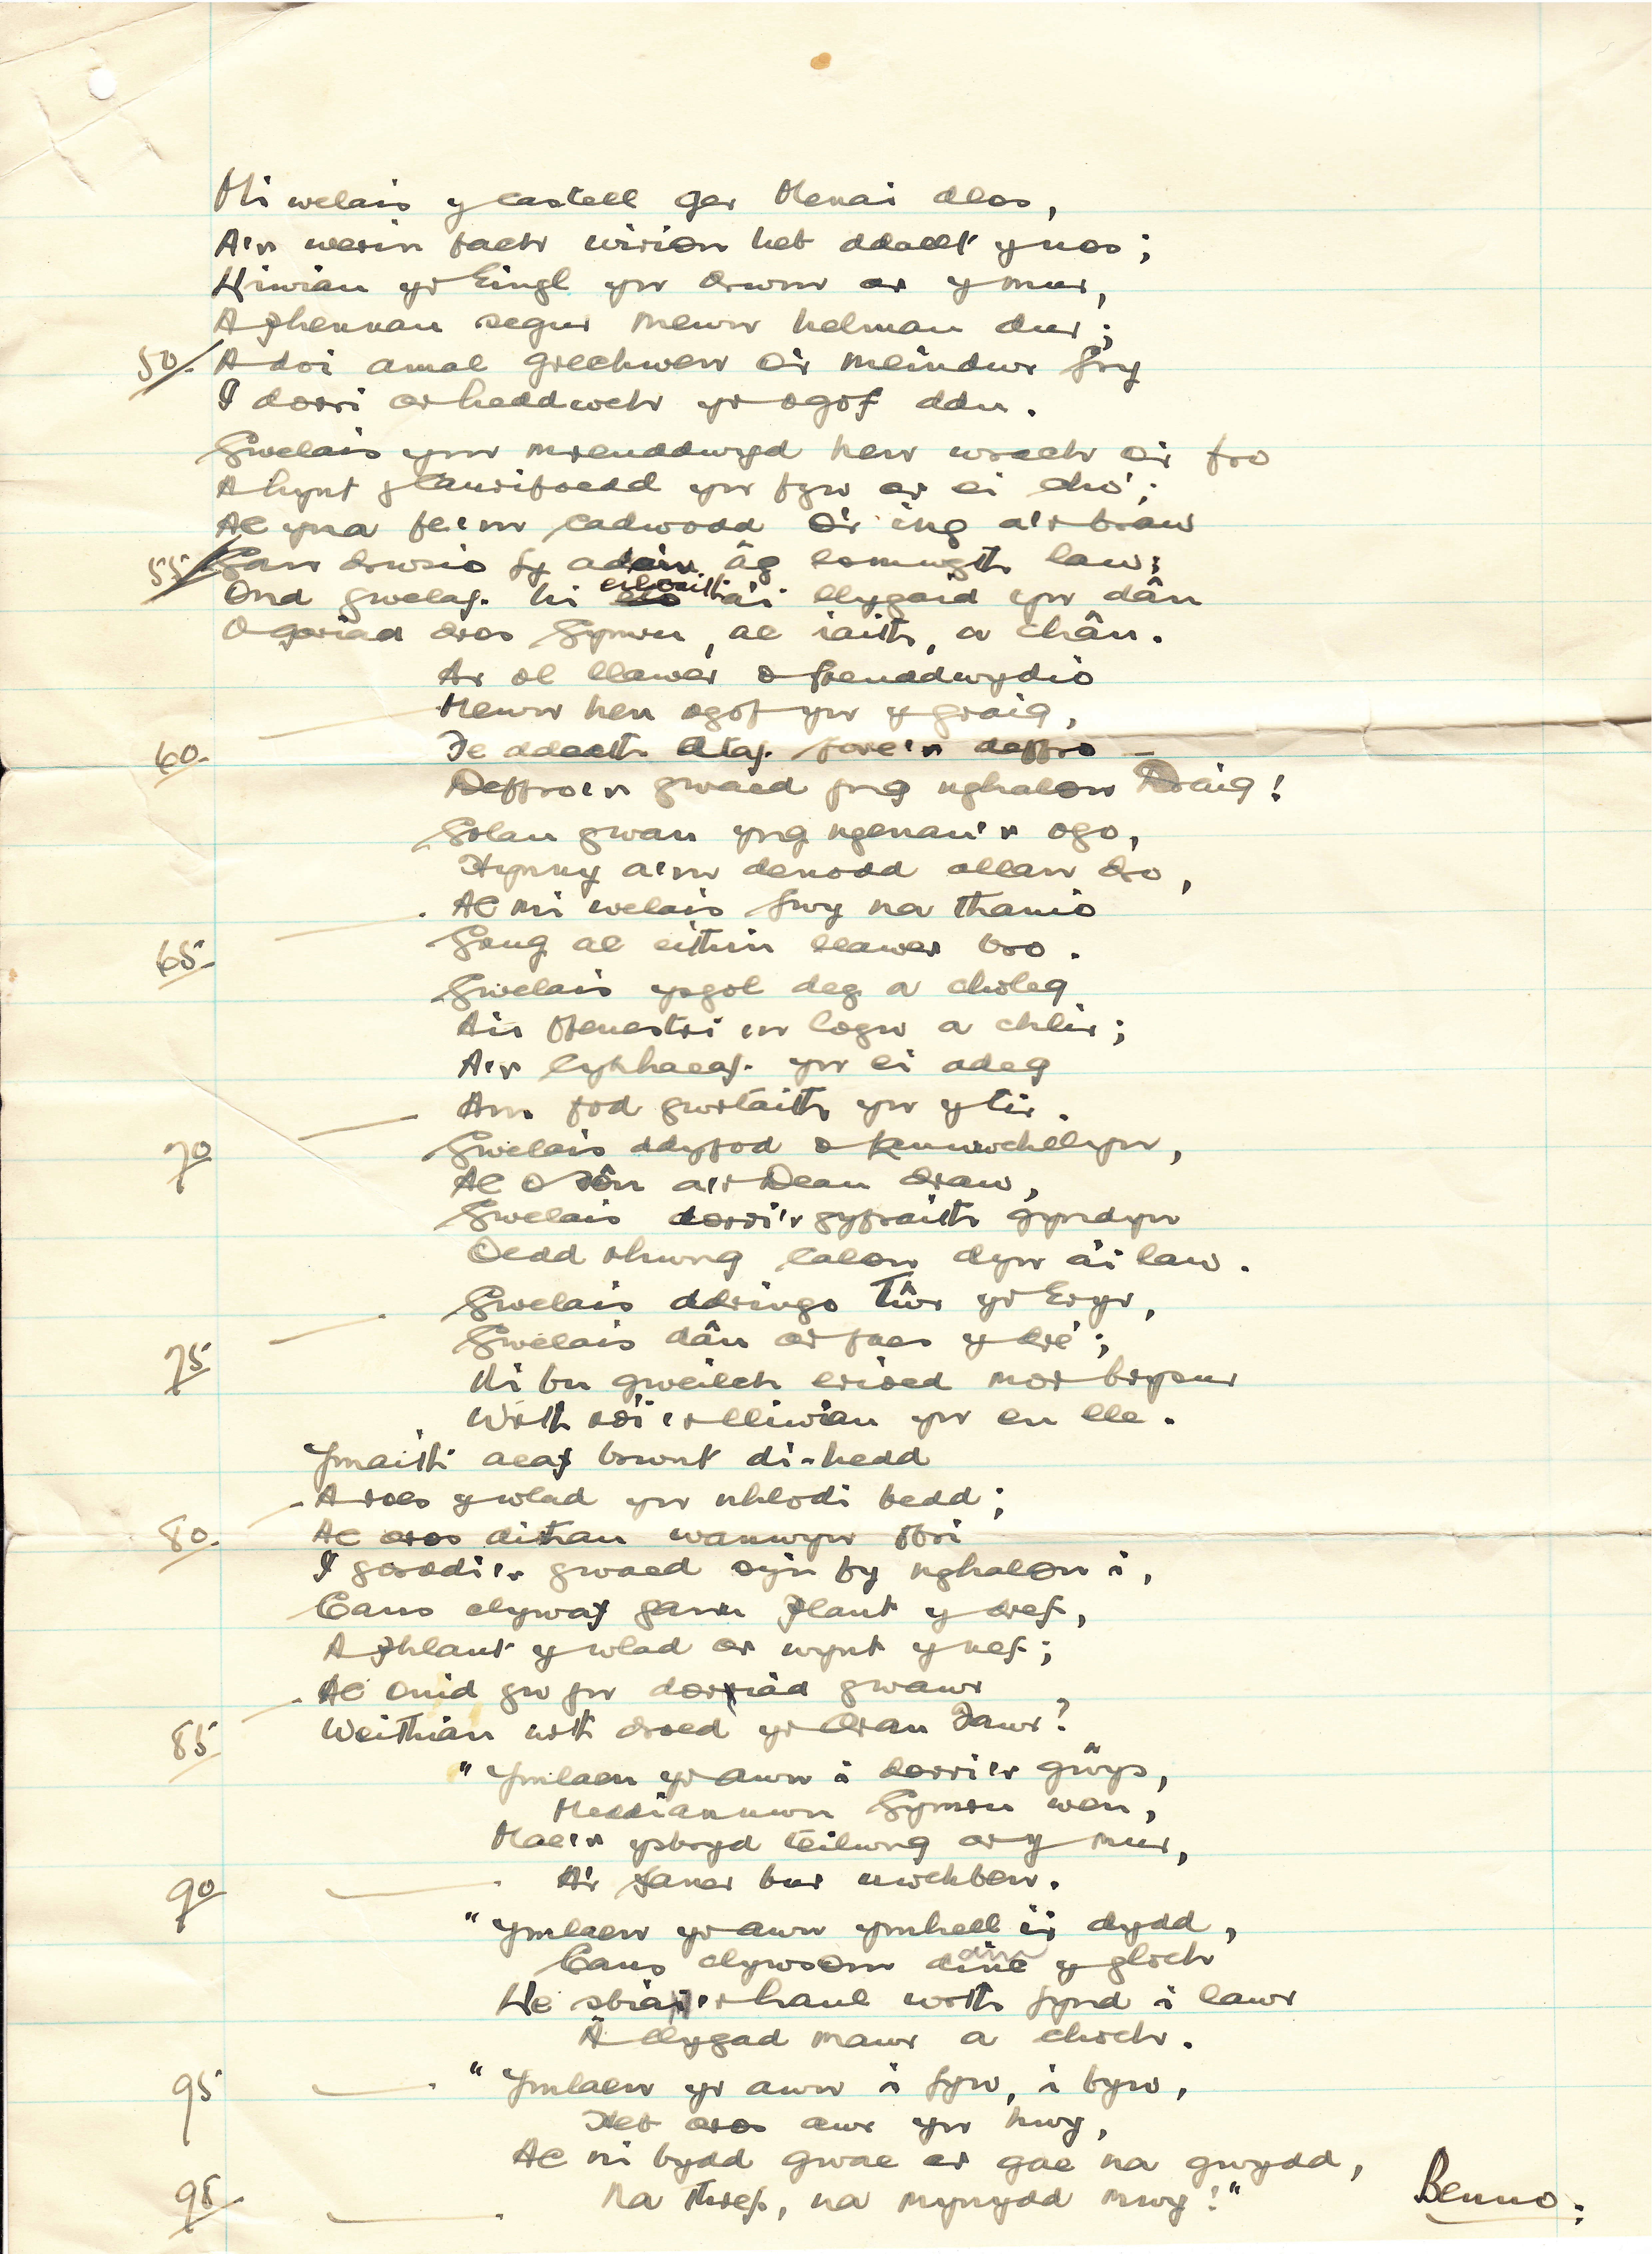 Mi welais y castell ger Menai dlos,
A'r werin fach wirion heb ddallt y nos;
Lliwiau yr Eingl yn drwm ar y mur,
A phennau segur mewn helmau dur;
50. A doi amal grechwen o'r meindwr fry
I dorri ar heddwch yr ogof ddu.
Gwelais ym mreuddwyd hen wrach o'r fro
A hynt y canrifoedd yn fyw ar ei cho';
Ac yna fe'm cadwodd o'r ing a'r braw
55 Gan drwsio fy adain âg esmwyth law;
Ond gwelaf hi eilwaith a'i llygaid yn dân
O gariad dros Gymru, ac iaith, a chân.
Ar ol llawer o freuddwydio
Mewn hen ogof yn y graig,
60. Fe ddaeth Ataf fore'r deffro –
Deffro'r gwaed yng nghalon Draig!
Golau gwan yng ngenau'r ogo,
Hynny a'm denodd allan dro,
Ac mi welais fwy na thanio
65. Grug ac eithin llawer bro.
Gwelais ysgol deg a choleg
A'u ffenestri 'n logw a chlir;
A'r cynhaeaf yn ei adeg
Am fod gwrtaith yn y tir.
70 Gwelais ddyfod o Ffynnwchellyn,
Ac o Sôn a'r Dean draw,
Gwelais dorri'r gyfraith gyndyn
Oedd rhwng calon dyn a'i law.
Gwelais ddringo Tŵr yr Eryr,
75 Gwelais dân ar faes y dre';
Ni bu gweilch erioed mor brysur
Wrth roi'r lliwiau yn eu lle.
Ymaith aeaf brwnt di-hedd
A roes y wlad yn nhlodi bedd;
80. Ac aros dithau wanwyn ffri
I gorddi'r gwaed sy'n fy nghalon i,
Cans clywaf gamu plant y dref,
A phlant y wlad ar wynt y nef;
Ac onid gwyn doriad gwawr
85 Weithian wrth droed yr Aran Fawr?
"Ymlaen yr awn i dorri'r gŵys,
Meddiannwn Gymru wen,
Mae'r ysbryd teilwng ar y mur,
90 A'r faner bur uwchben.
"Ymlaen yr awn ymhell i'r dydd,
Cans clywsom dinc y gloch
Ue sbia'r haul wrth fynd i lawr
Â llygad mawr a choch.
95 "Ymlaen yr awn i fyw, i fyw,
Heb aros awr yn hwy,
Ac ni bydd gwae ar gae na gwŷdd,
98. Na thref, na mynydd mwy!"
Benno: